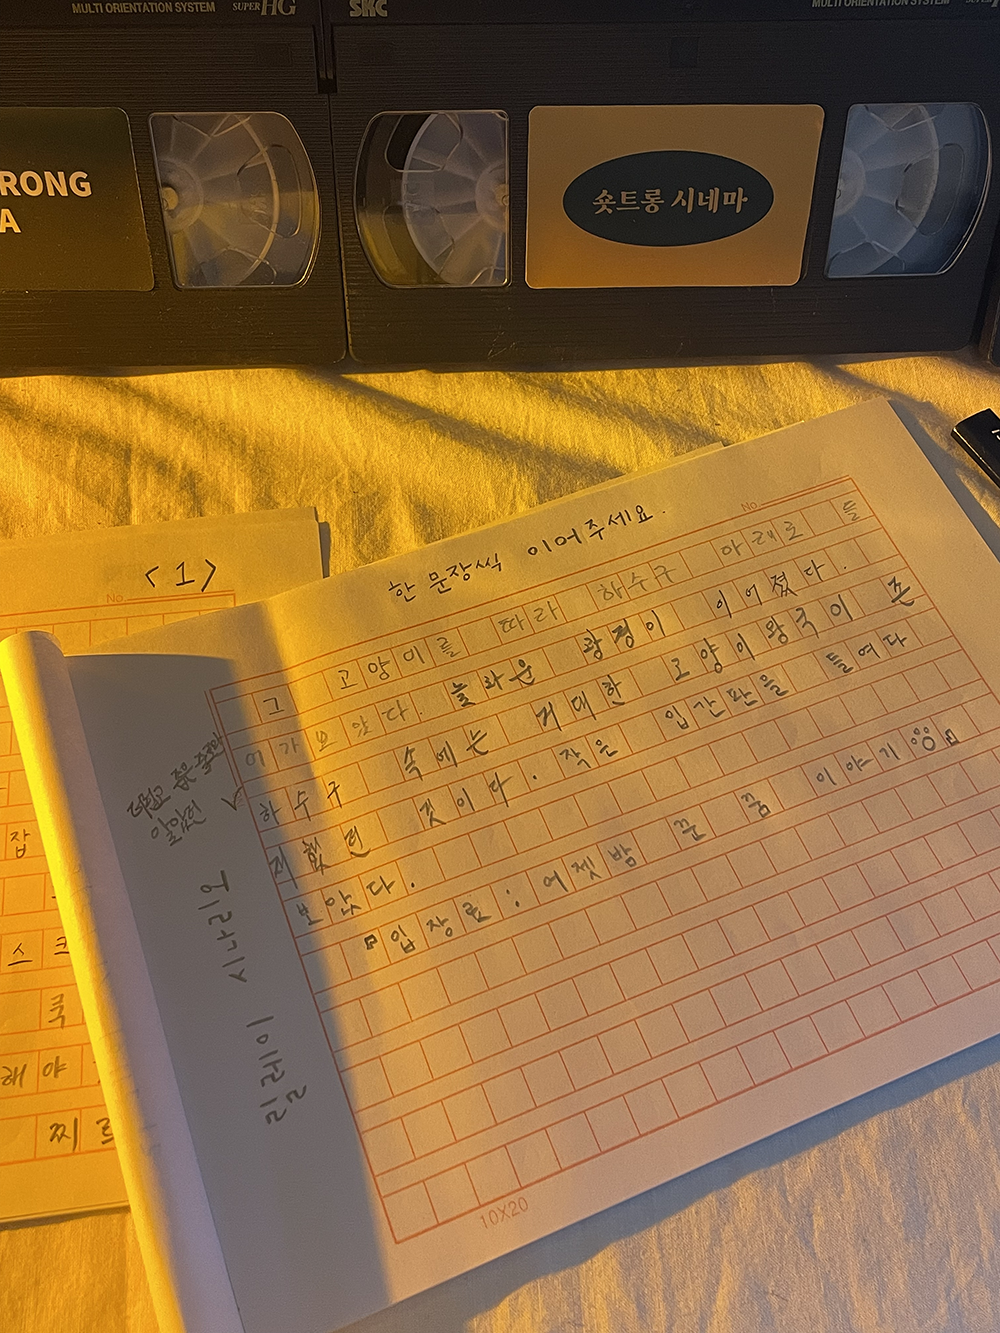 MULTI ORIENTATION SYSTEM SUPER HG
SKC
MULTI ORIENTATION SYSTEM
RONG
A
숏트롱 시네마
<1>
No.
잡
스크
해야
찌르
한 문장씩 이어주세요.
No.
그 고양이를 따라 하수구 아래로 들
어가보았다. 놀라운 광경이 이어졌다.
하수구 속에는 거대한 고양이왕국이 존
재했던 것이다. 작은 입간판을 들여다
보았다.
입장료: 어젯밤 꾼 꿈 이야기
10X20